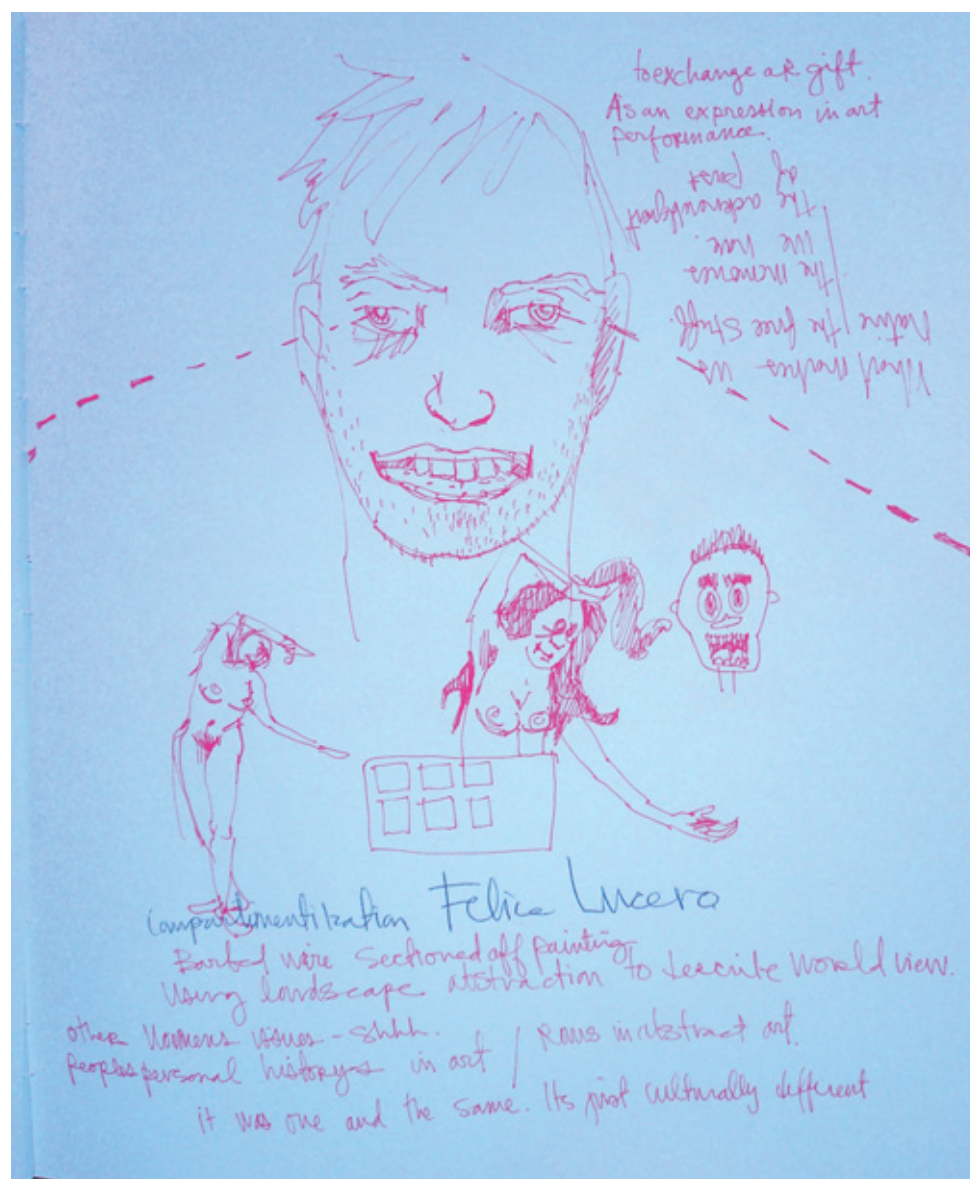 to exchange a gift.
As an expression in art
performance.
What makes us
Native / the free stuff.
the memories
we have.
the acknowledgment
of past
Compartimentilzation Felice Lucero
Barbed wire sectioned off painting
Using landscape abstraction to describe World view.
other Womens issues - shhh.
peoples personal historys in art / Rows in abstract art.
it was one and the same. Its just culturally different